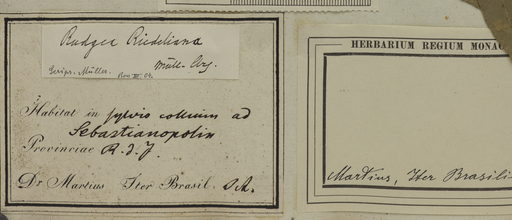 Rudgea Riedeliana
Müll. Arg.
Scrips. Müller.
Habitat in sylvis collium ad
Sebastianopolin
Provinciae R. d. J.
Dr Martius Iter Brasil.
HERBARIUM REGIUM MONAC
Martius, Iter Brasili